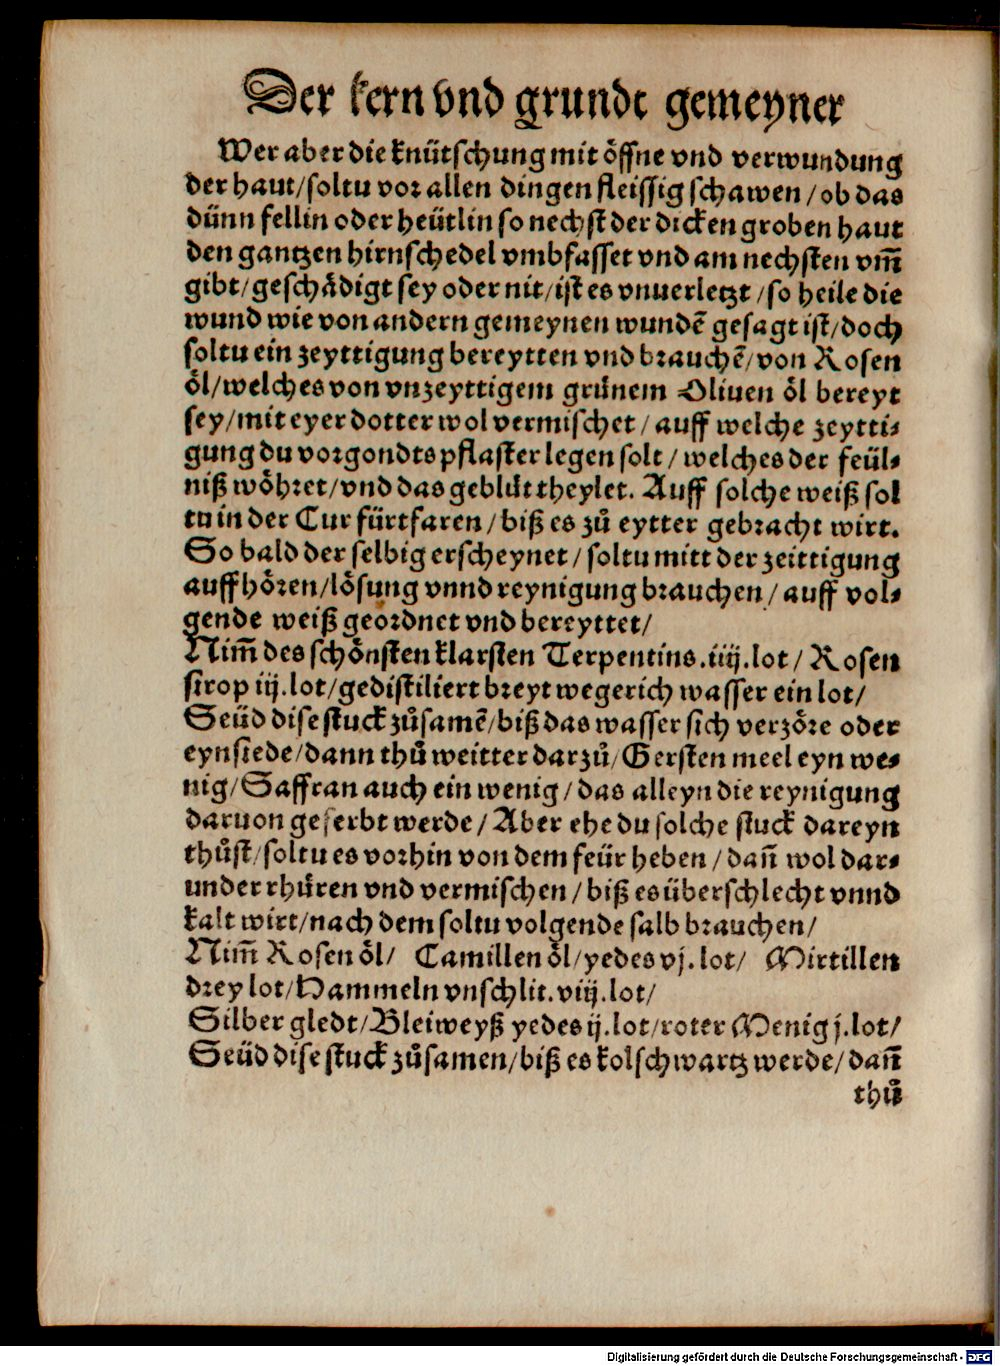 Der kern vnd grundt gemeyner
Wer aber die knütschung mit öffne vnd verwundung
der haut/soltu vor allen dingen fleissig schawen/ob das
dünn fellin oder heütlin so nechst der dicken groben haut
den gantzen hirnschedel vmbfasset vnd am nechsten vm̄
gibt/geschädigt sey oder nit/ist es vnuerletzt/so heile die
wund wie von andern gemeynen wundē gesagt ist/doch
soltu ein zeyttigung bereytten vnd brauchē/von Rosen
öl/welches von vnzeyttigem grünem Oliuen öl bereyt
sey/mit eyer dotter wol vermischet/auff welche zeytti⸗
gung du vorgondts pflaster legen solt/welches der feül⸗
niß wöhret/vnd das geblüt theylet. Auff solche weiß sol
tu in der Cur fürtfaren/biß es zů eytter gebracht wirt.
So bald der selbig erscheynet/soltu mitt der zeittigung
auff hören/lösung vnnd reynigung brauchen/auff vol⸗
gende weiß geordnet vnd bereyttet/
Nim̄ des schönsten klarsten Terpentins.iiij.lot/Rosen
sirop iij.lot/gedistiliert breyt wegerich wasser ein lot/
Seüd dise stuck zůsamē/biß das wasser sich verzöre oder
eynsiede/dann thů weitter darzů/Gersten meel eyn we⸗
nig/Saffran auch ein wenig/das alleyn die reynigung
daruon geferbt werde/Aber ehe du solche stuck dareyn
thůst/soltu es vorhin von dem feür heben/dan̄ wol dar⸗
under rhüren vnd vermischen/biß es überschlecht vnnd
kalt wirt/nach dem soltu volgende salb brauchen/
Nim̄ Rosen öl/ Camillen öl/yedes vj.lot/ Mirtillen
drey lot/Hammeln vnschlit.viij.lot/
Silber gledt/Bleiweyß yedes ij.lot/roter Menig j.lot/
Seüd dise stuck zůsamen/biß es kolschwartz werde/dan̄
thů
Digitalisierung gefördert durch die Deutsche Forschungsgemeinschaft - DFG